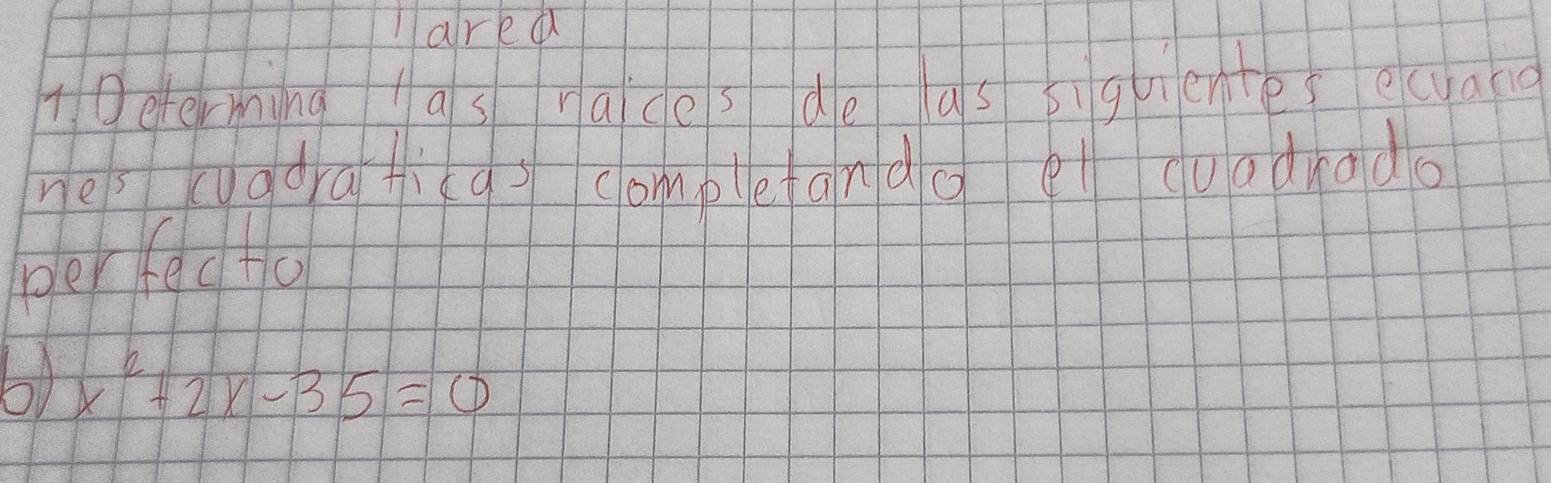 Tarea
1. Determina las raices de las siguientes ecuacio
nes cuadraticas completando el cuadrado
perfecto
b) x² + 2x - 35 = 0